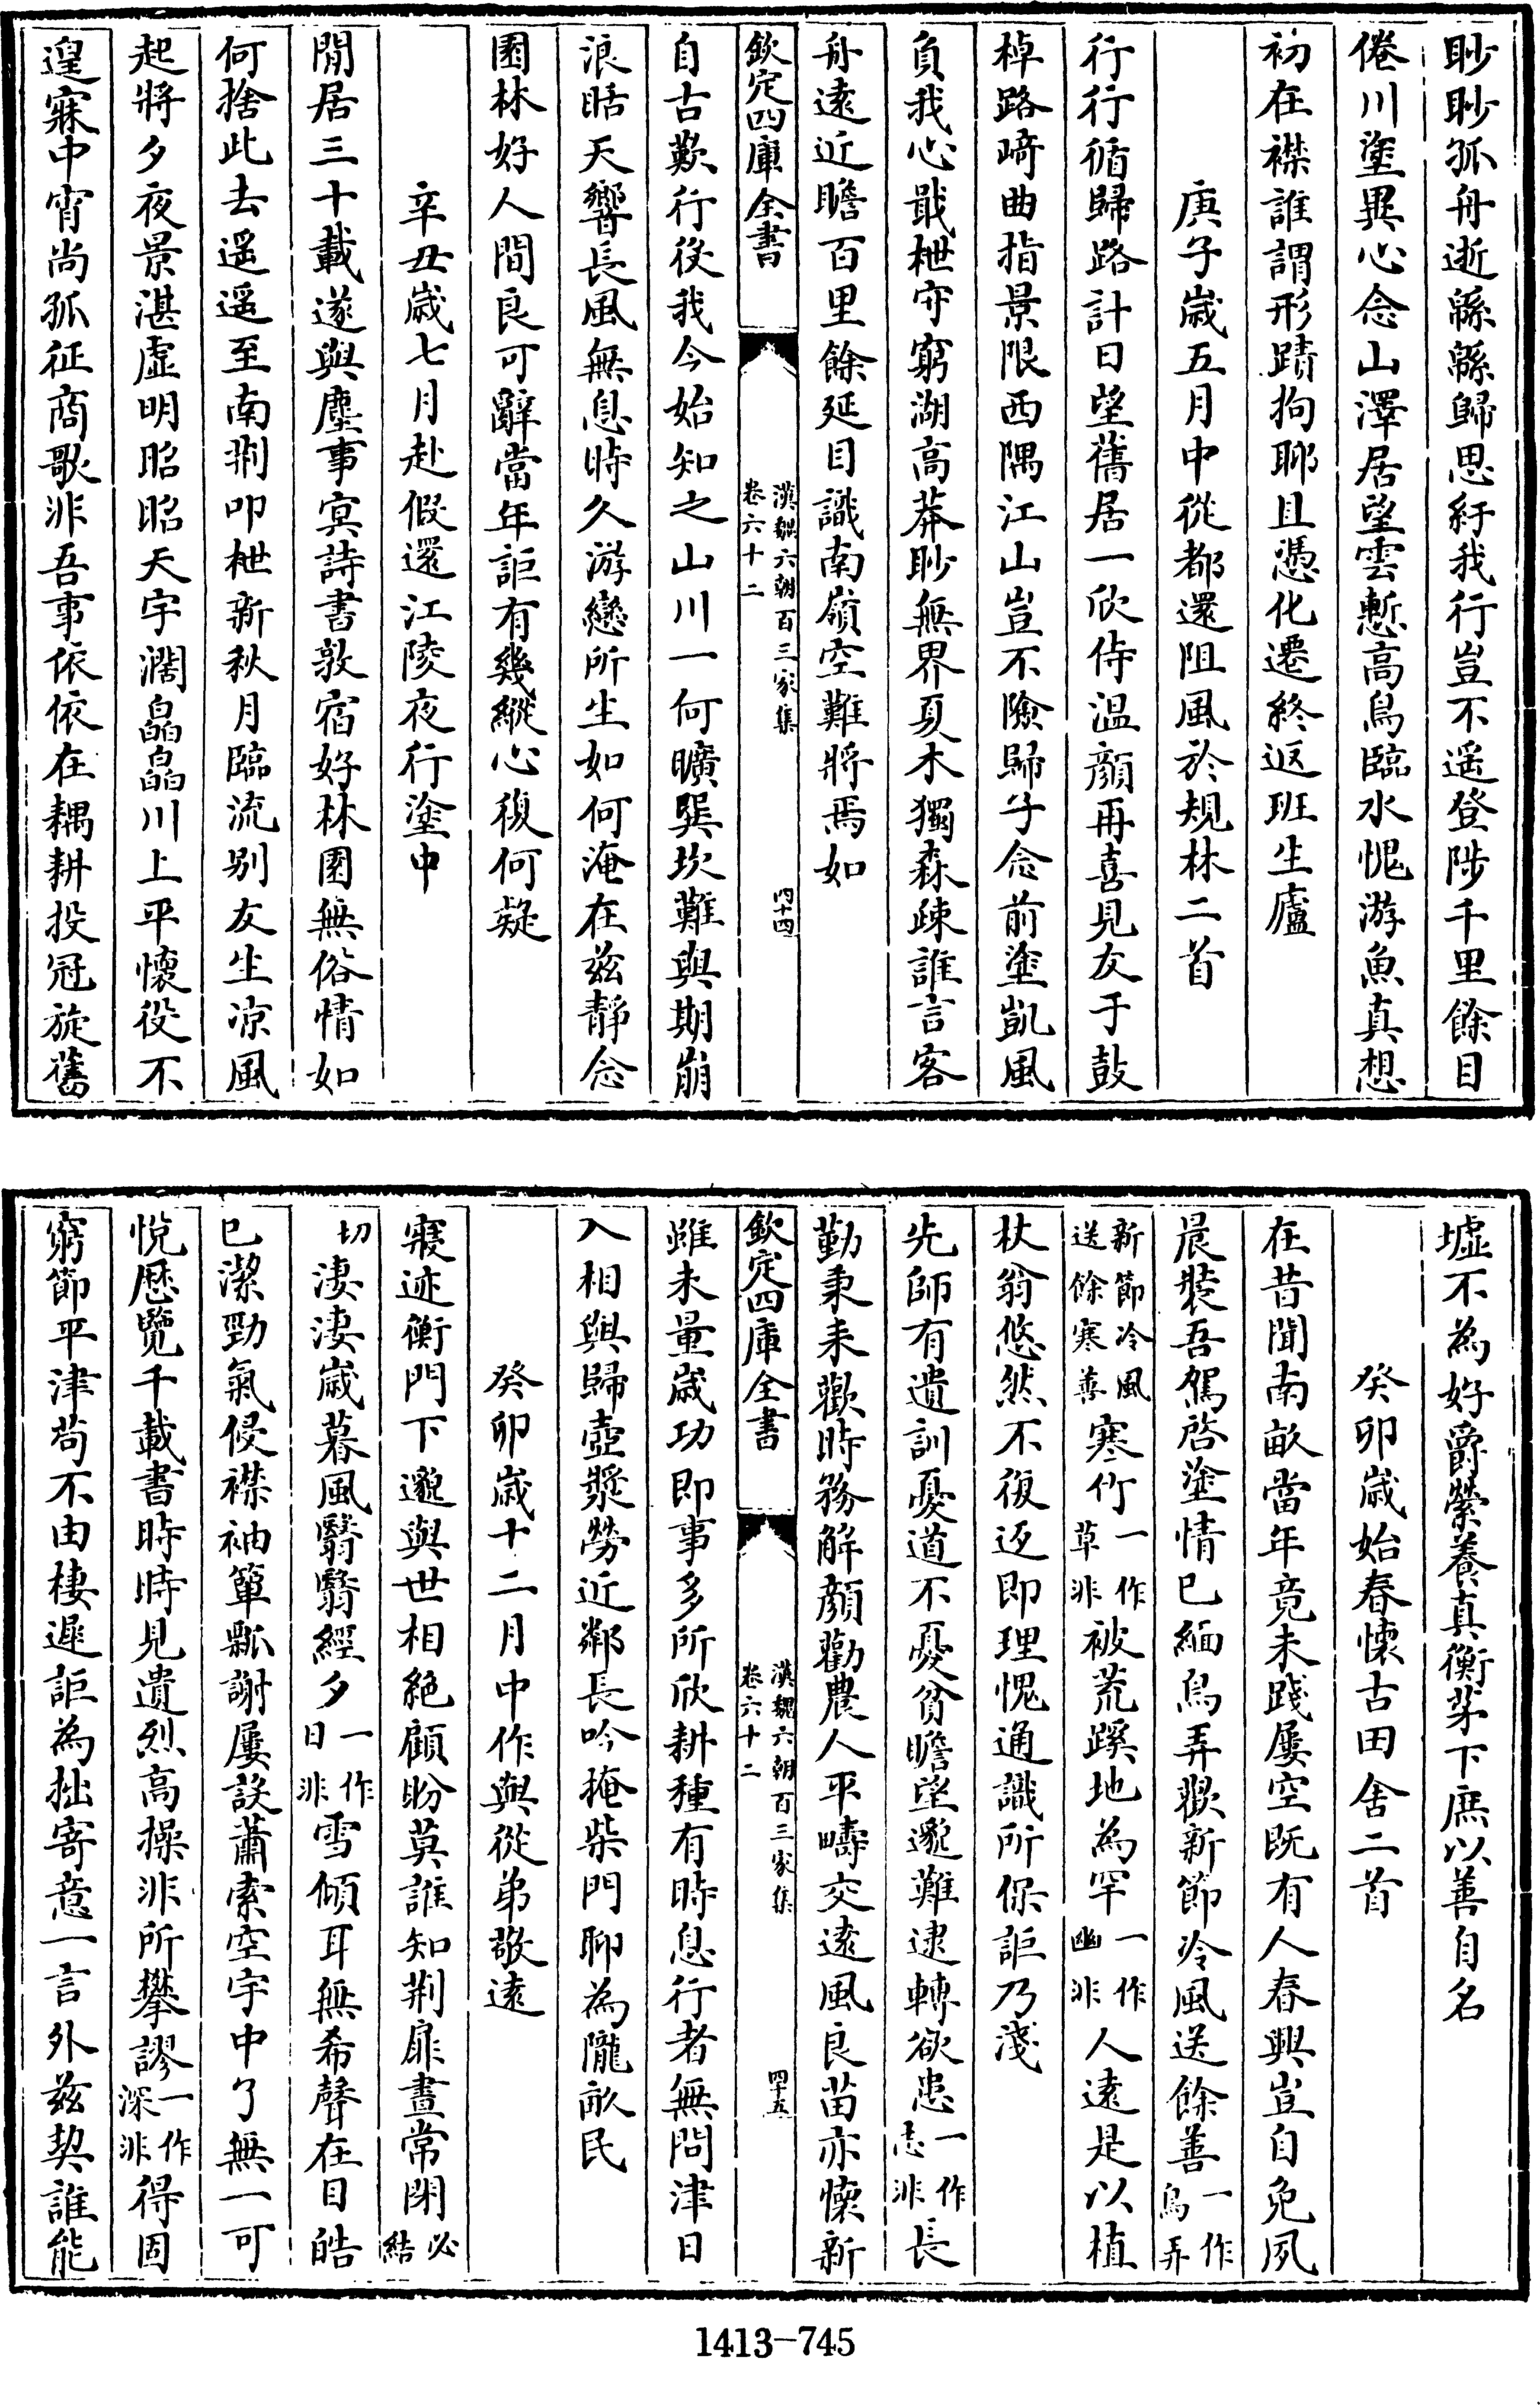 眇眇孤舟逝緜緜歸思紆我行豈不遥登陟千里餘目
倦川塗異心念山澤居望雲慙高鳥臨水愧游魚真想
初在襟誰謂形蹟拘聊且憑化遷終返班生廬
庚子歲五月中從都還阻風於規林二首
行行循歸路計日望舊居一欣侍温顔再喜見友于鼓
棹路崎曲指景限西隅江山豈不險歸子念前塗凱風
負我心戢枻守窮湖高莽眇無界夏木獨森疎誰言客
舟遠近瞻百里餘延目識南嶺空難將焉如
欽定四庫全書
漢魏六朝百三家集
卷六十二
四十四
自古歎行役我今始知之山川一何曠巽坎難與期崩
浪聒天響長風無息時久游戀所生如何淹在兹靜念
園林好人間良可辭當年詎有幾縱心復何疑
辛丑歲七月赴假還江陵夜行塗中
閒居三十載遂與塵事冥詩書敦宿好林園無俗情如
何捨此去遥遥至南荆叩枻新秋月臨流别友生凉風
起將夕夜景湛虚明昭昭天宇濶皛皛川上平懷役不
遑寐中宵尚孤征商歌非吾事依依在耦耕投冠旋舊
墟不為好爵縈養真衡茅下庶以善自名
癸卯歲始春懷古田舍二首
在昔聞南畝當年竟未踐屢空既有人春興豈自免夙
晨裝吾駕啓塗情已緬鳥弄歡新節冷風送餘善一作鳥弄
新節冷風送餘寒善寒竹一作草非被荒蹊地為罕一作幽非人遠是以植
杖翁悠然不復返即理愧通識所保詎乃淺
先師有遺訓憂道不憂貧瞻望邈難逮轉欲患一作志非長
勤秉耒歡時務解顔勸農人平疇交遠風良苗亦懷新
欽定四庫全書
漢魏六朝百三家集
卷六十二
四十五
雖未量歲功即事多所欣耕種有時息行者無問津日
入相與歸壺漿勞近鄰長吟掩柴門聊為隴畝民
癸卯歲十二月中作與從弟敬遠
寢迹衡門下邈與世相絶顧盼莫誰知荆扉晝常閉必結
切淒淒歲暮風翳翳經夕一作日非雪傾耳無希聲在目皓
已潔勁氣侵襟袖簞瓢謝屢設蕭索空宇中了無一可
悅歷覽千載書時時見遺烈高操非所攀謬一作深非得固
窮節平津苟不由棲遲詎為拙寄意一言外兹契誰能
1413-745